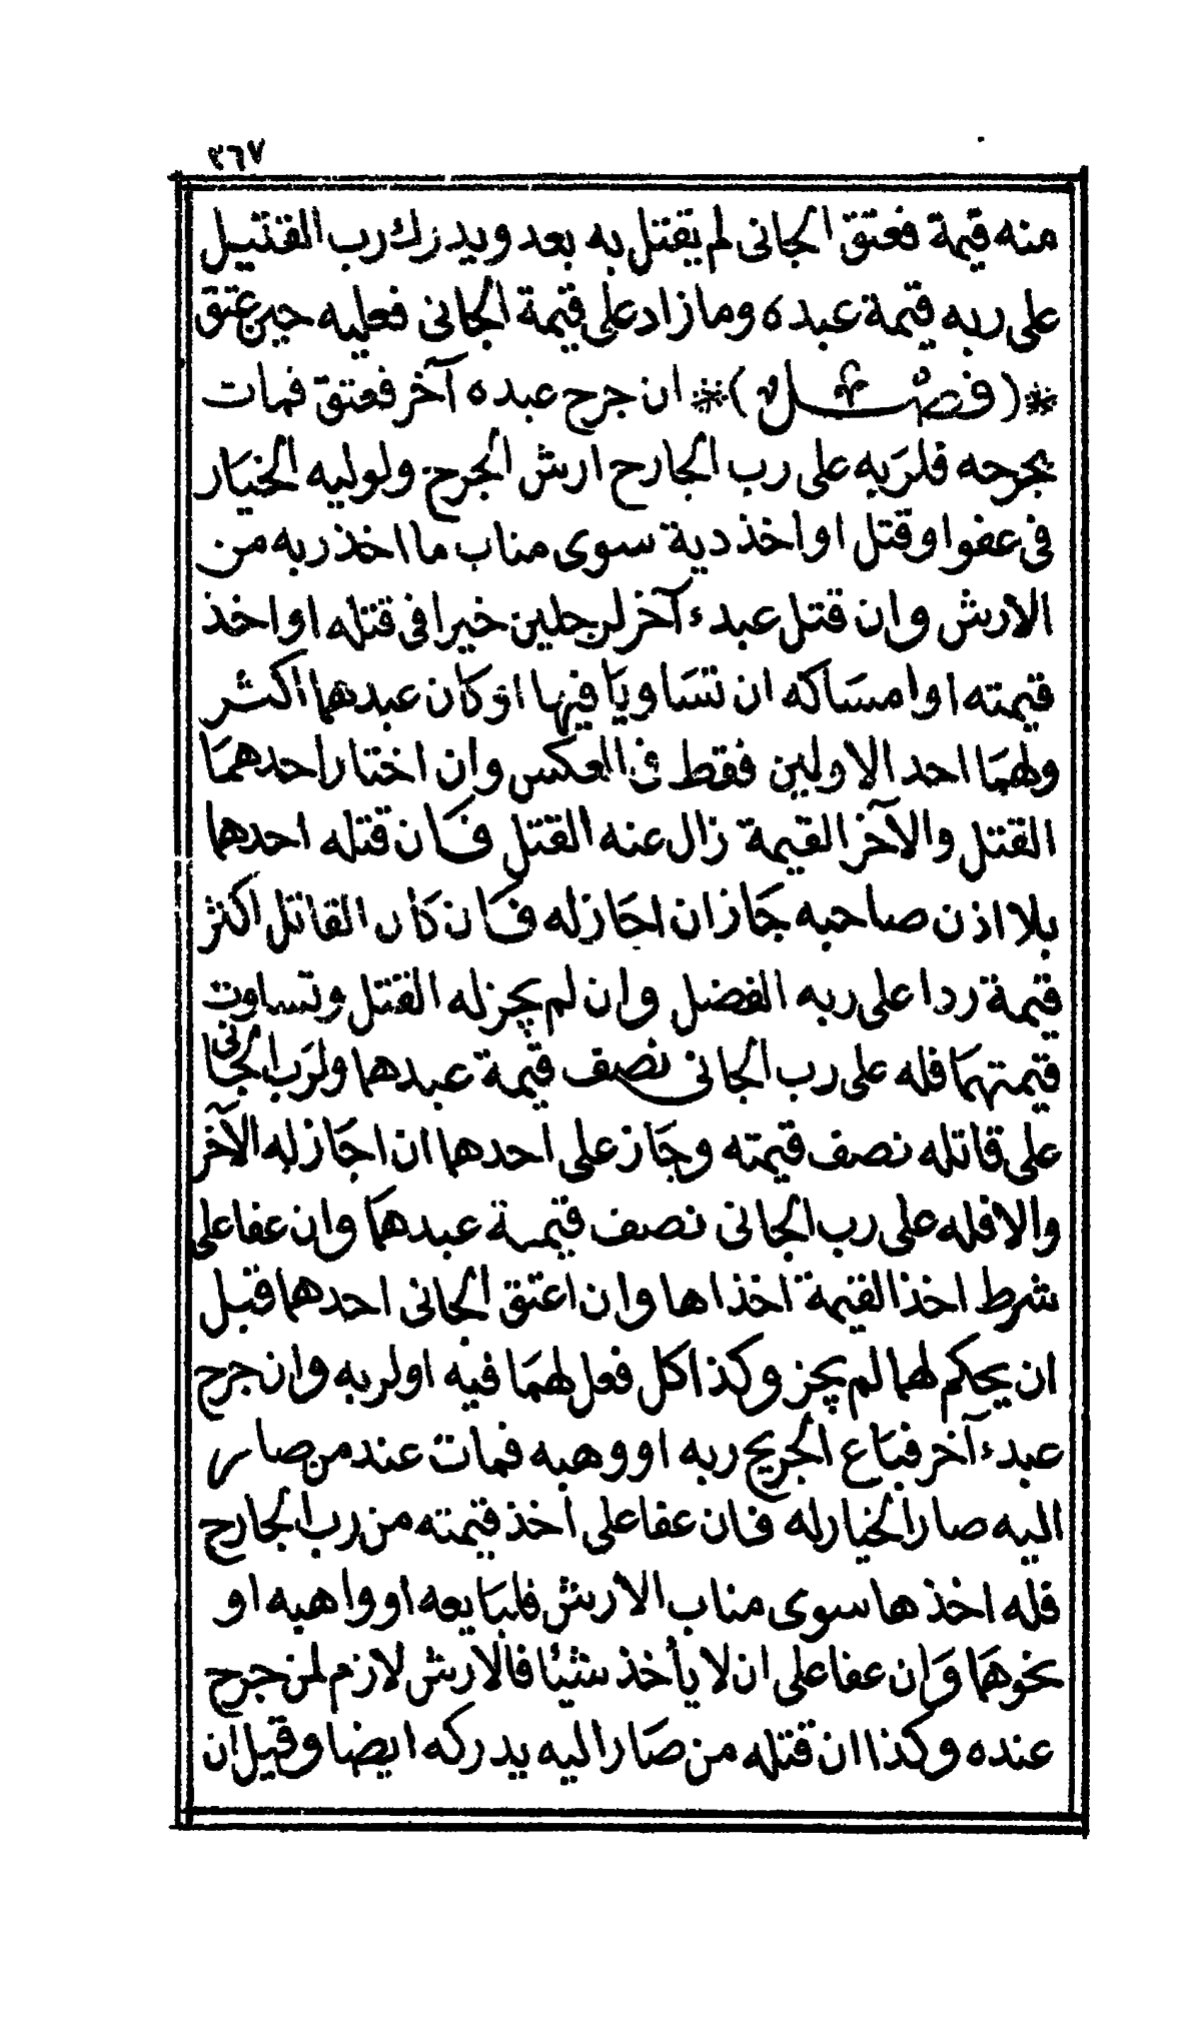 ٣٦٧
منه قيمة فعتق الجانى لم يقتل به بعد ويدرك رب القتيل
على ربه قيمة عبده وما زاد على قيمة الجانى فعليه حين عتق
* (فصل) * ان جرح عبده آخر فعتق فمات
بجرحه فلربه على رب الجارح ارش الجرح ولوليه الخيار
فى عفو او قتل او اخذ دية سوى مناب ما اخذ ربه من
الارش وان قتل عبدء آخر لرجلين خيرا فى قتله او اخذ
قيمته او امساكه ان تساويا فيها او كان عبدهما اكثر
ولهما احد الاولين فقط فى العكس وان اختار احدهما
القتل والآخر القيمة زال عنه القتل فان قتله احدهما
بلا اذن صاحبه جاز ان اجاز له فان كان القاتل اكثر
قيمة ردا على ربه الفضل وان لم يجز له القتل وتساوت
قيمتهما فله على رب الجانى نصف قيمة عبدهما ولرب الجانى
على قاتله نصف قيمته وجاز على احدهما ان اجاز له الآخر
والا فله على رب الجانى نصف قيمة عبدهما وان عفا على
شرط اخذ القيمة اخذاها وان اعتق الجانى احدهما قبل
ان يحكم لهما لم يجز وكذا كل فعل لهما فيه او لربه وان جرح
عبدء آخر فباع الجريح ربه او وهبه فمات عند من صار
اليه صار الخيار له فان عفا على اخذ قيمته من رب الجارح
فله اخذها سوى مناب الارش فلبايعه او واهبه او
نحوها وان عفا على ان لا يأخذ شيئا فالارش لازم لمن جرح
عنده وكذا ان قتله من صار اليه يدركه ايضا وقيل ان